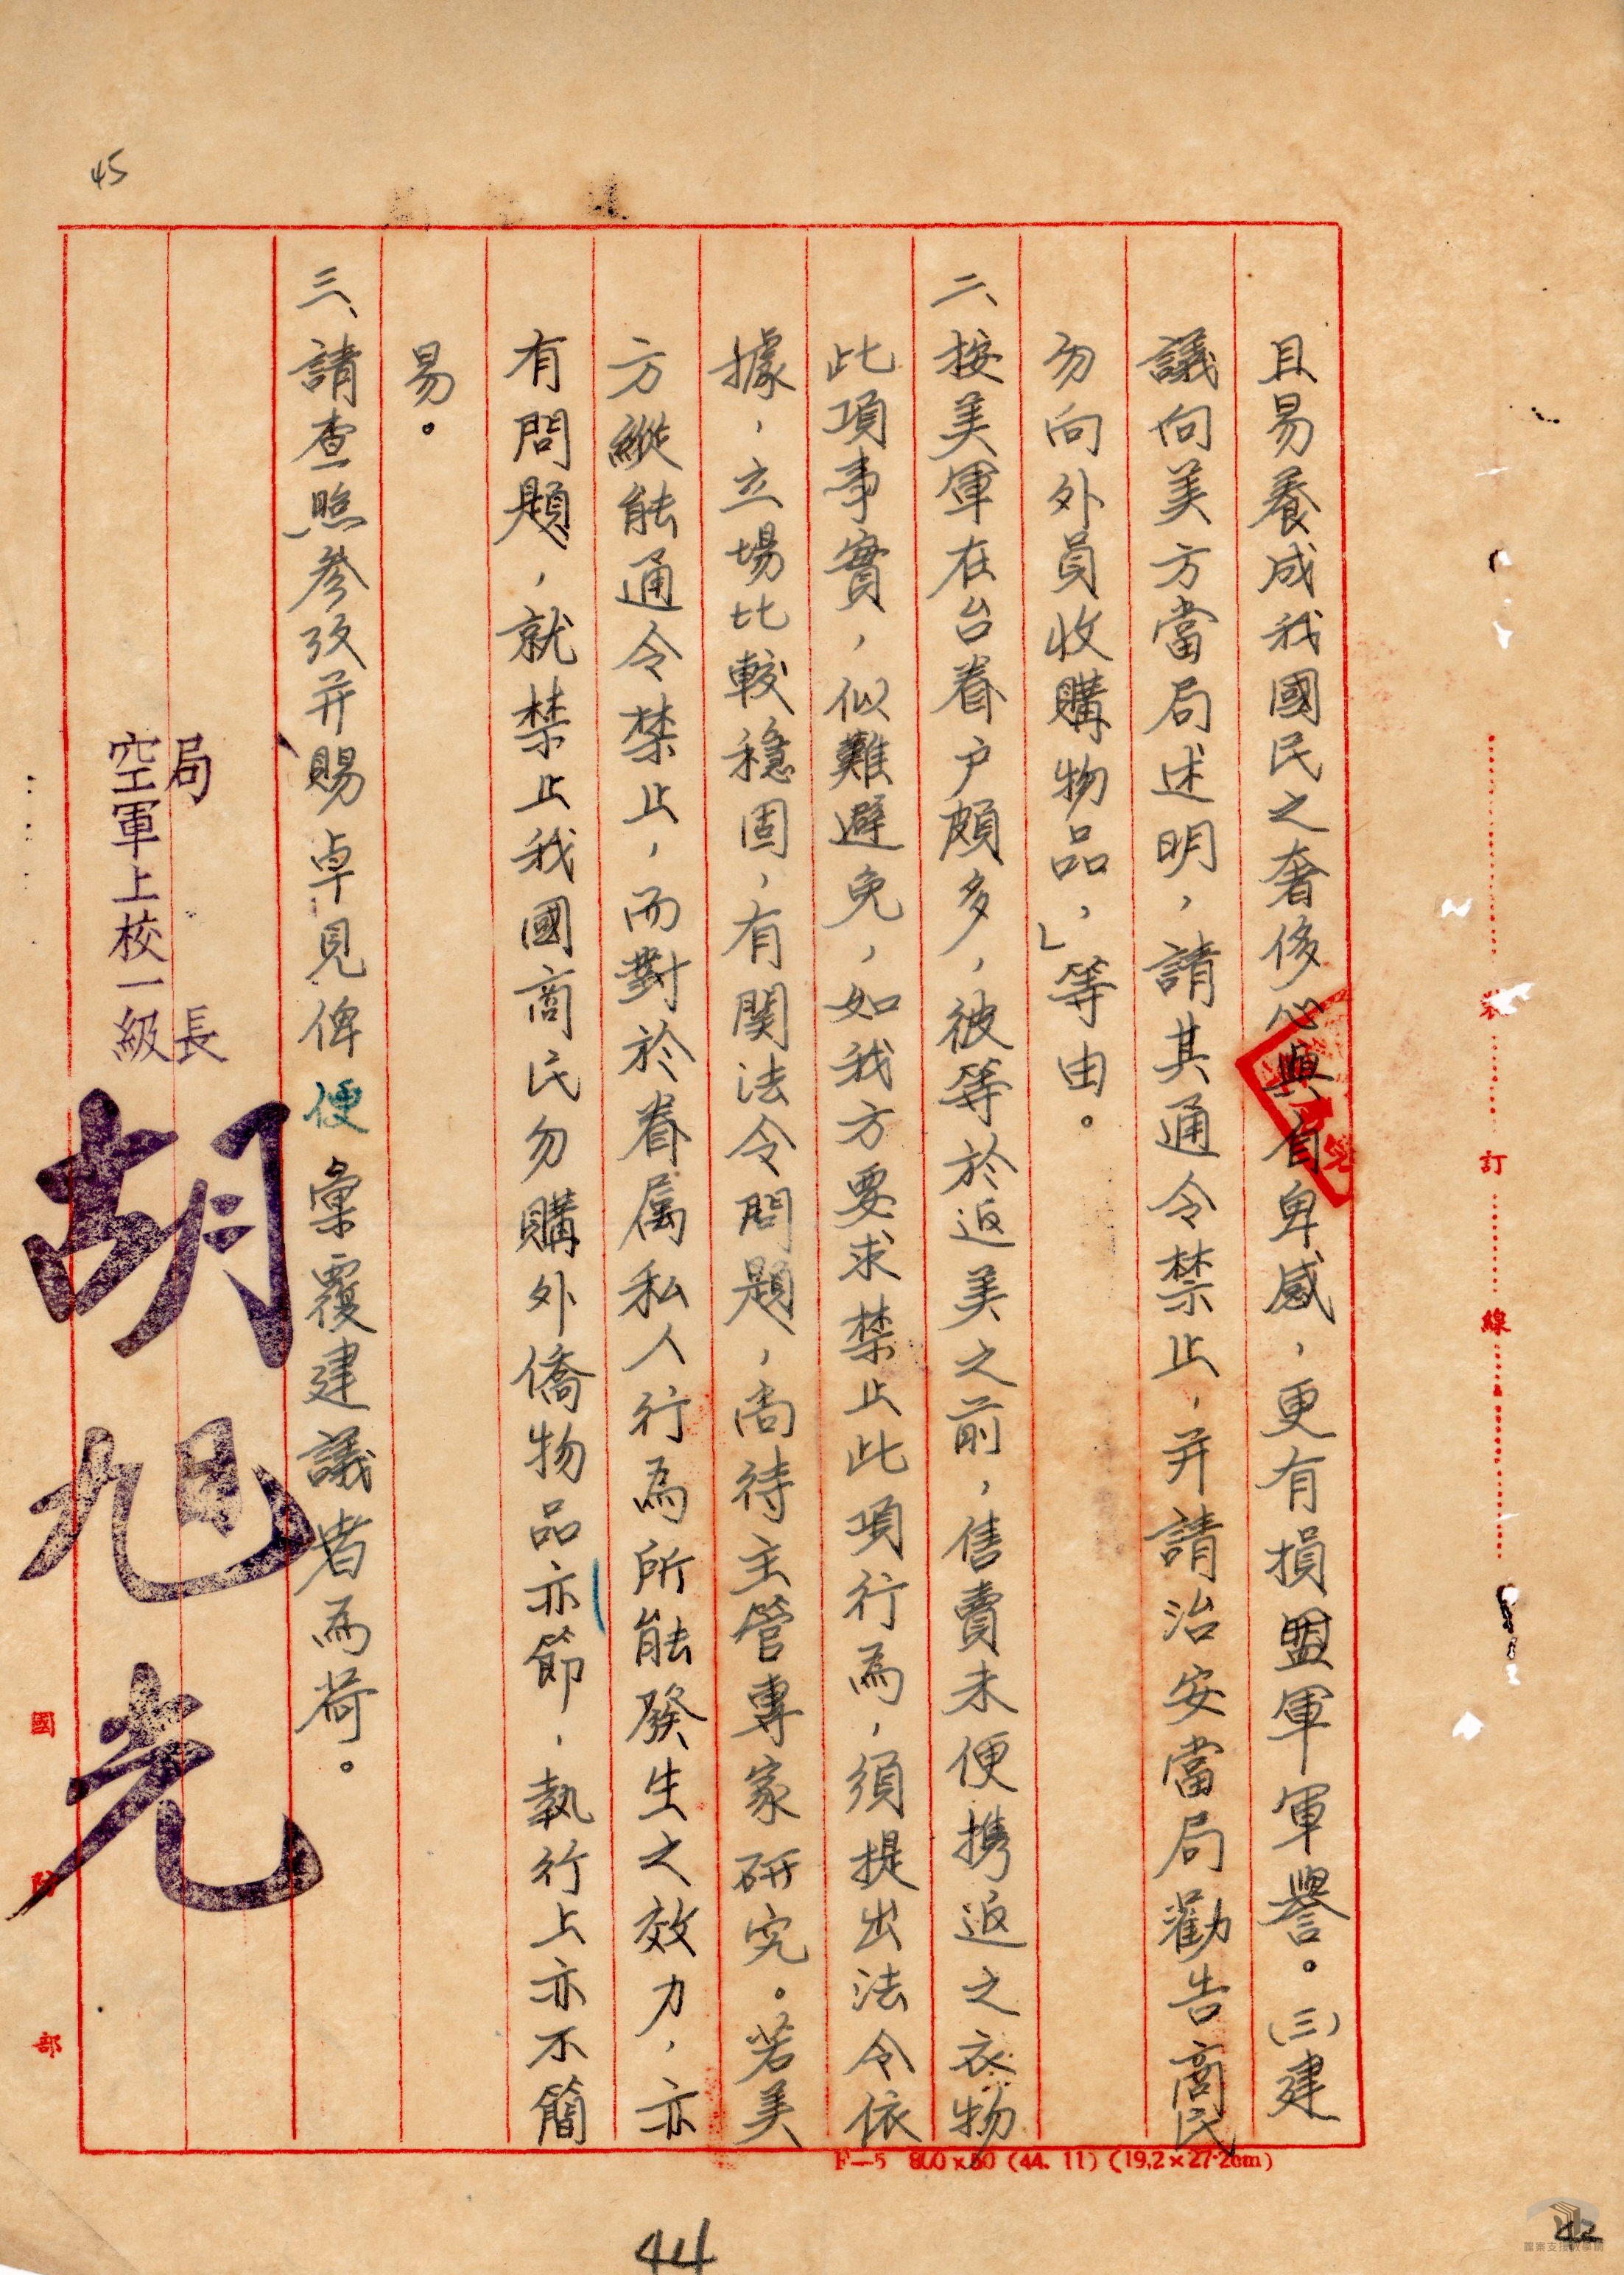 45
且易養成我國民之奢侈心與自卑感，更有損盟軍軍譽。㈢建
議向美方當局述明，請其通令禁止，并請治安當局勸告商民
勿向外員收購物品，」等由。
二、按美軍在台眷户頗多，彼等於返美之前，售賣未便携返之衣物
此項事實，似難避免，如我方要求禁止此項行為，須提出法令依
據，立場比較穩固，有関法令問題，尚待主管專家研究。若美
方縱能通令禁止，而對於眷属私人行為所能發生之效力，亦
有問題，就禁止我國商民勿購外僑物品亦節，執行上亦不簡
易。
三、請查照參攷并賜卓見俾便彙覆建議者為荷。
局長
空軍上校一級
胡旭光
訂
線
國防部
F—5 800×50 (44. 11) (19,2×27·2cm)
44
42
檔案支援教學網